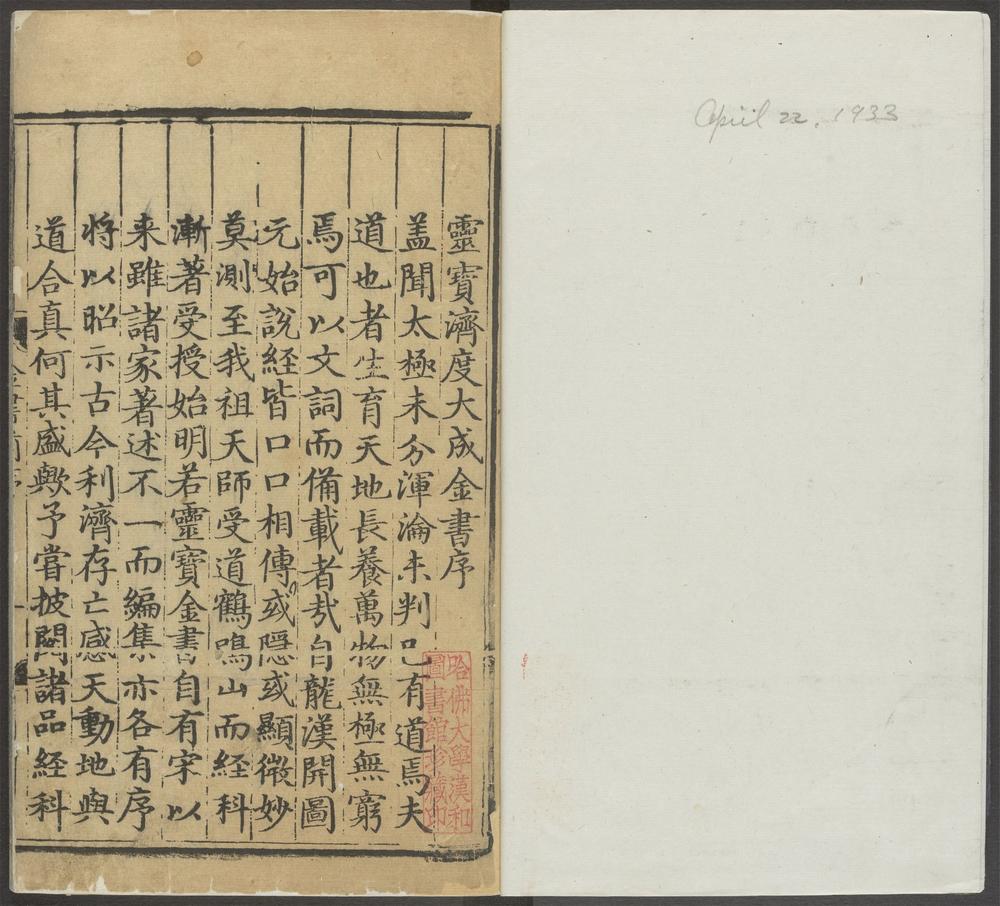 April 22, 1933
靈寶濟度大成金書序
盖聞太極未分渾淪未判已有道焉夫
道也者生育天地長養萬物無極無窮
焉可以文詞而備載者哉自龍漢開圖
元始說經皆口口相傳或隠或顯微妙
莫測至我祖天師受道鶴鳴山而經科
漸著受授始明若靈寶金書自有宋以
来雖諸家著述不一而編集亦各有序
将以昭示古今利濟存亡感天動地與
道合真何其盛歟予嘗披閱諸品経科
哈佛大學漢和
圖書館珍藏印